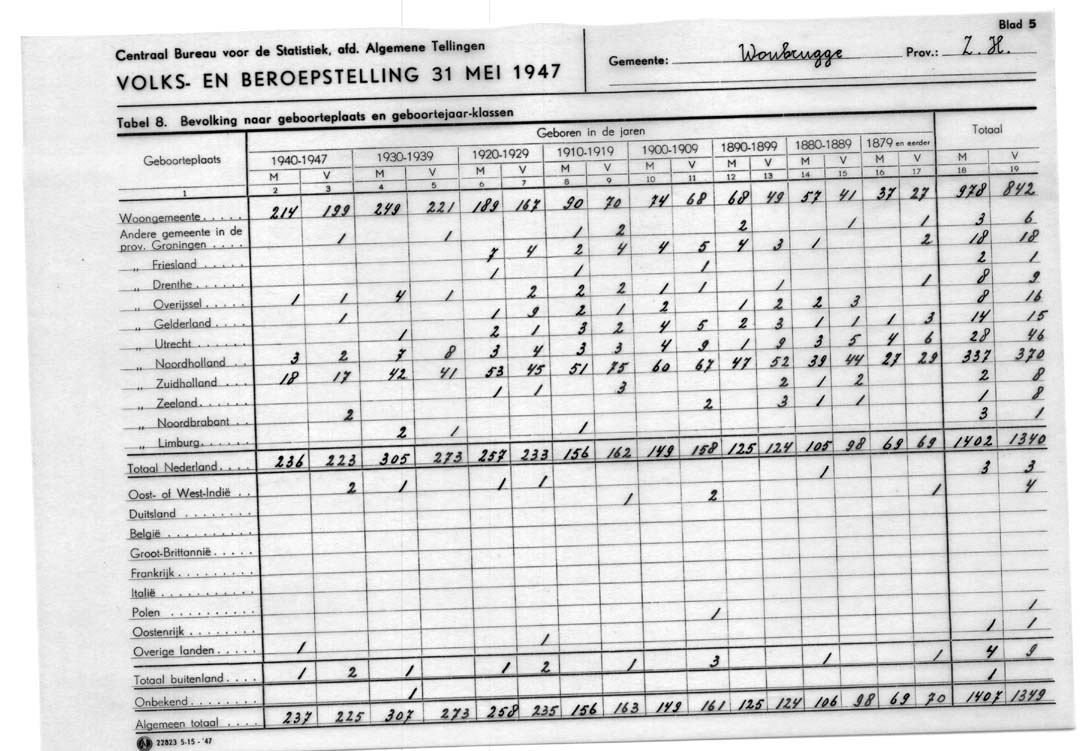 Blad 5
Centraal Bureau voor de Statistiek, afd. Algemene Tellingen
VOLKS- EN BEROEPSTELLING 31 MEI 1947
Gemeente: Woubrugge Prov.: Z. H.
Tabel 8. Bevolking naar geboorteplaats en geboortejaar-klassen
Geboorteplaats Geboren in de jaren Totaal
1940-1947 1930-1939 1920-1929 1910-1919 1900-1909 1890-1899 1880-1889 1879 en eerder
M V M V M V M V M V M V M V M V M V
1 2 3 4 5 6 7 8 9 10 11 12 13 14 15 16 17 18 19
Woongemeente..... 214 199 249 221 189 167 90 70 74 68 68 49 57 41 37 27 978 842
Andere gemeente in de
prov. Groningen..... 1 1 1 2 2 1 1 3 6
„ Friesland..... 7 4 2 4 4 5 4 3 1 2 18 18
„ Drenthe..... 1 1 1 2 1
„ Overijssel..... 1 1 4 1 2 2 2 1 1 1 1 8 9
„ Gelderland..... 1 1 9 2 1 2 1 2 2 3 8 16
„ Utrecht..... 1 2 1 3 2 4 5 2 3 1 1 1 3 14 15
„ Noordholland... 3 2 7 8 3 4 3 3 4 9 1 9 3 5 4 6 28 46
„ Zuidholland.... 18 17 42 41 53 45 51 75 60 67 47 52 39 44 27 29 337 370
„ Zeeland..... 1 1 3 2 1 2 2 8
„ Noordbrabant.. 2 2 3 1 1 1 8
„ Limburg..... 2 1 1 3 1
Totaal Nederland.... 236 223 305 273 257 233 156 162 149 158 125 124 105 98 69 69 1402 1340
Oost- of West-Indië.. 2 1 1 1 1 3 3
Duitsland........ 1 2 1 4
België..........
Groot-Brittannië.....
Frankrijk..........
Italië............
Polen.......... 1 1
Oostenrijk.........
Overige landen..... 1 1 1 1
Totaal buitenland.... 1 2 1 1 2 1 3 1 1 4 9
Onbekend........ 1 1
Algemeen totaal..... 237 225 307 273 258 235 156 163 149 161 125 124 106 98 69 70 1407 1349
22823 5-15-'47